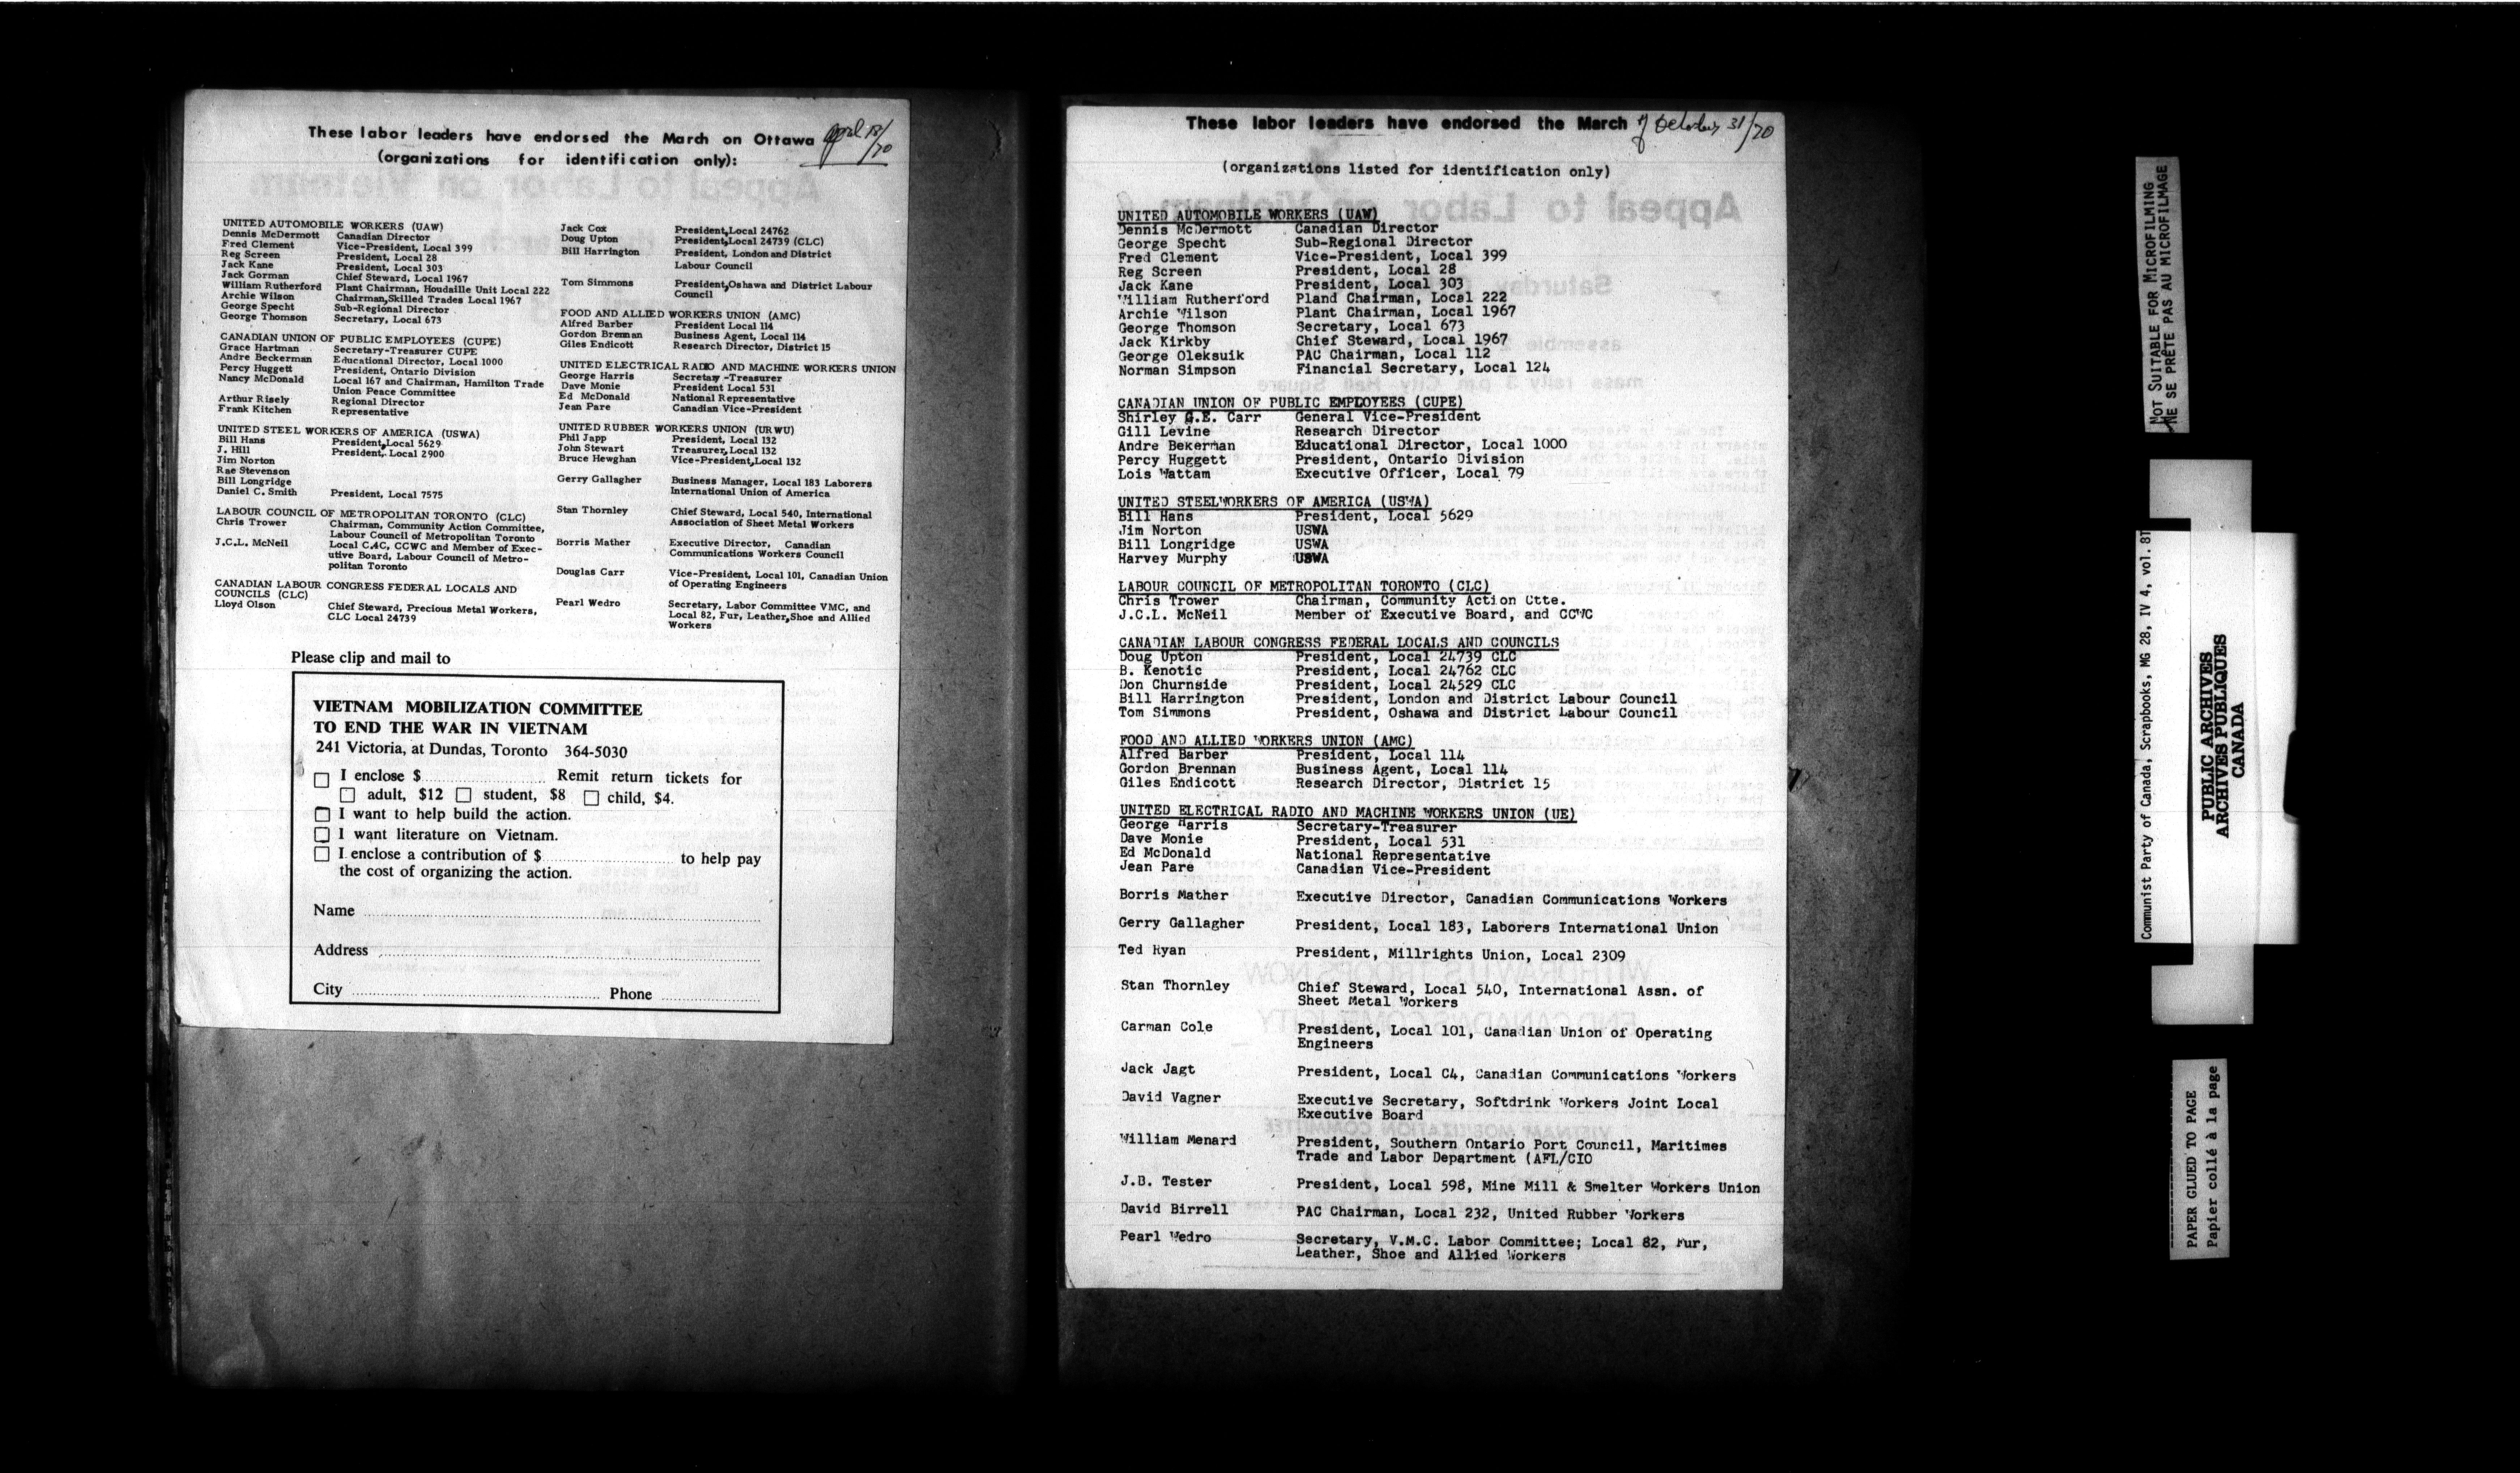 These labor leaders have endorsed the March on Ottawa April 18/70
(organizations for identification only):
UNITED AUTOMOBILE WORKERS (UAW)
Dennis McDermott Canadian Director
Fred Clement Vice-President, Local 399
Reg Screen President, Local 28
Jack Kane President, Local 303
Jack Gorman Chief Steward, Local 1967
William Rutherford Plant Chairman, Houdaille Unit Local 222
Archie Wilson Chairman, Skilled Trades Local 1967
George Specht Sub-Regional Director
George Thomson Secretary, Local 673
CANADIAN UNION OF PUBLIC EMPLOYEES (CUPE)
Grace Hartman Secretary-Treasurer CUPE
Andre Beckerman Educational Director, Local 1000
Percy Huggett President, Ontario Division
Nancy McDonald Local 167 and Chairman, Hamilton Trade
Union Peace Committee
Arthur Risely Regional Director
Frank Kitchen Representative
UNITED STEEL WORKERS OF AMERICA (USWA)
Bill Hans President, Local 5629
J. Hill President, Local 2900
Jim Norton
Rae Stevenson
Bill Longridge
Daniel C. Smith President, Local 7575
LABOUR COUNCIL OF METROPOLITAN TORONTO (CLC)
Chris Trower Chairman, Community Action Committee,
Labour Council of Metropolitan Toronto
J.C.L. McNeil Local C.4C, CCWC and Member of Exec-
utive Board, Labour Council of Metro-
politan Toronto
CANADIAN LABOUR CONGRESS FEDERAL LOCALS AND
COUNCILS (CLC)
Lloyd Olson Chief Steward, Precious Metal Workers,
CLC Local 24739
Jack Cox President, Local 24762
Doug Upton President, Local 24739 (CLC)
Bill Harrington President, London and District
Labour Council
Tom Simmons President, Oshawa and District Labour
Council
FOOD AND ALLIED WORKERS UNION (AMC)
Alfred Barber President Local 114
Gordon Brennan Business Agent, Local 114
Giles Endicott Research Director, District 15
UNITED ELECTRICAL RADIO AND MACHINE WORKERS UNION
George Harris Secretary -Treasurer
Dave Monie President Local 531
Ed McDonald National Representative
Jean Pare Canadian Vice-President
UNITED RUBBER WORKERS UNION (URWU)
Phil Japp President, Local 132
John Stewart Treasurer, Local 132
Bruce Hewghan Vice-President, Local 132
Gerry Gallagher Business Manager, Local 183 Laborers
International Union of America
Stan Thornley Chief Steward, Local 540, International
Association of Sheet Metal Workers
Borris Mather Executive Director, Canadian
Communications Workers Council
Douglas Carr Vice-President, Local 101, Canadian Union
of Operating Engineers
Pearl Wedro Secretary, Labor Committee VMC, and
Local 82, Fur, Leather, Shoe and Allied
Workers
Please clip and mail to
VIETNAM MOBILIZATION COMMITTEE
TO END THE WAR IN VIETNAM
241 Victoria, at Dundas, Toronto 364-5030
I enclose $ Remit return tickets for
adult, $12 student, $8 child, $4.
I want to help build the action.
I want literature on Vietnam.
I enclose a contribution of $ to help pay
the cost of organizing the action.
Name
Address
City Phone
These labor leaders have endorsed the March of October 31/70
(organizations listed for identification only)
UNITED AUTOMOBILE WORKERS (UAW)
Dennis McDermott Canadian Director
George Specht Sub-Regional Director
Fred Clement Vice-President, Local 399
Reg Screen President, Local 28
Jack Kane President, Local 303
William Rutherford Pland Chairman, Local 222
Archie Wilson Plant Chairman, Local 1967
George Thomson Secretary, Local 673
Jack Kirkby Chief Steward, Local 1967
George Oleksuik PAC Chairman, Local 112
Norman Simpson Financial Secretary, Local 124
CANADIAN UNION OF PUBLIC EMPLOYEES (CUPE)
Shirley G.E. Carr General Vice-President
Gill Levine Research Director
Andre Bekerman Educational Director, Local 1000
Percy Huggett President, Ontario Division
Lois Wattam Executive Officer, Local 79
UNITED STEELWORKERS OF AMERICA (USWA)
Bill Hans President, Local 5629
Jim Norton USWA
Bill Longridge USWA
Harvey Murphy USWA
LABOUR COUNCIL OF METROPOLITAN TORONTO (CLC)
Chris Trower Chairman, Community Action Ctte.
J.C.L. McNeil Member of Executive Board, and CCWC
CANADIAN LABOUR CONGRESS FEDERAL LOCALS AND COUNCILS
Doug Upton President, Local 24739 CLC
B. Kenotic President, Local 24762 CLC
Don Churnside President, Local 24529 CLC
Bill Harrington President, London and District Labour Council
Tom Simmons President, Oshawa and District Labour Council
FOOD AND ALLIED WORKERS UNION (AMC)
Alfred Barber President, Local 114
Gordon Brennan Business Agent, Local 114
Giles Endicott Research Director, District 15
UNITED ELECTRICAL RADIO AND MACHINE WORKERS UNION (UE)
George Harris Secretary-Treasurer
Dave Monie President, Local 531
Ed McDonald National Representative
Jean Pare Canadian Vice-President
Borris Mather Executive Director, Canadian Communications Workers
Gerry Gallagher President, Local 183, Laborers International Union
Ted Ryan President, Millrights Union, Local 2309
Stan Thornley Chief Steward, Local 540, International Assn. of
Sheet Metal Workers
Carman Cole President, Local 101, Canadian Union of Operating
Engineers
Jack Jagt President, Local C4, Canadian Communications Workers
David Vagner Executive Secretary, Softdrink Workers Joint Local
Executive Board
William Menard President, Southern Ontario Port Council, Maritimes
Trade and Labor Department (AFL/CIO
J.B. Tester President, Local 598, Mine Mill & Smelter Workers Union
David Birrell PAC Chairman, Local 232, United Rubber Workers
Pearl Wedro Secretary, V.M.C. Labor Committee; Local 82, Fur,
Leather, Shoe and Allied Workers
NOT SUITABLE FOR MICROFILMING
NE SE PRÊTE PAS AU MICROFILMAGE
Communist Party of Canada, Scrapbooks, MG 28, IV 4, vol. 81
PUBLIC ARCHIVES
ARCHIVES PUBLIQUES
CANADA
PAPER GLUED TO PAGE
Papier collé à la page